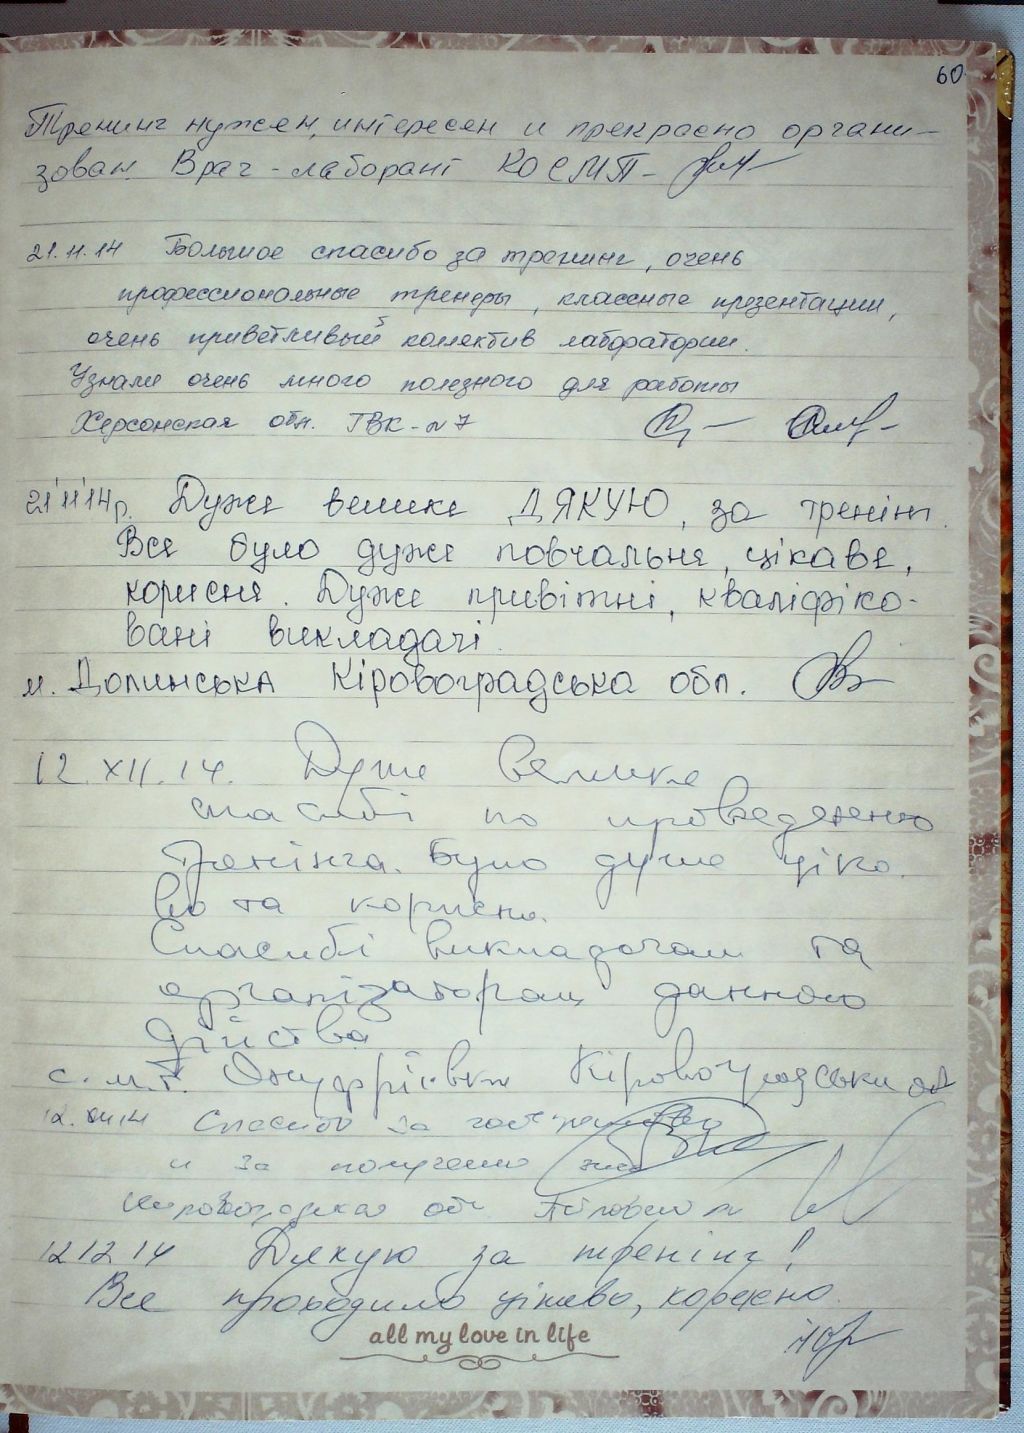 60
Тренинг нужен, интересен и прекрасно органи-
зован. Врач-лаборант КОСМП-
21.11.14 Большое спасибо за тренинг, очень
профессиональные тренеры, классные презентации,
очень приветливый колектив лаборатории.
Узнали очень много полезного для работы
Херсонская обл. ГВК-№7
21'11'14р. Дуже велике ДЯКУЮ, за тренінг.
Все було дуже повчальне, цікаве,
корисне. Дуже привітні, кваліфіко-
вані викладачі.
м. Долинська Кіровоградська обл.
12.XII.14. Дуже велике
спасибі по проведенню
тренінга. Було дуже ціка
во та корисно.
Спасибі викладачам та
організаторам данного
дійства
с.м.т. Онуфріївка Кіровоградська обл
12.XII.14 Спасибо за
и за
Кировоградская обл.
12 12 14 Дякую за тренінг!
Все проходило цікаво, корисно.
all my love in life